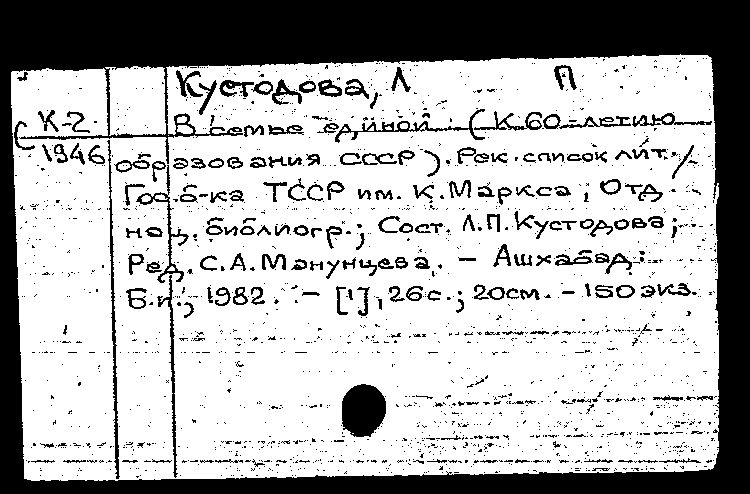 Кустодова, Л П
К-2 В семье единой (К 60-летию
1946 образования СССР). Рек. список лит. /
Гос. б-ка ТССР им. К. Маркса ; Отд.
нац. библиогр. ; Сост. Л.П. Кустодова ;
Ред. С.А. Манунцева. - Ашхабад :
Б.и., 1982. - [1], 26 с. ; 20 см. - 150 экз.